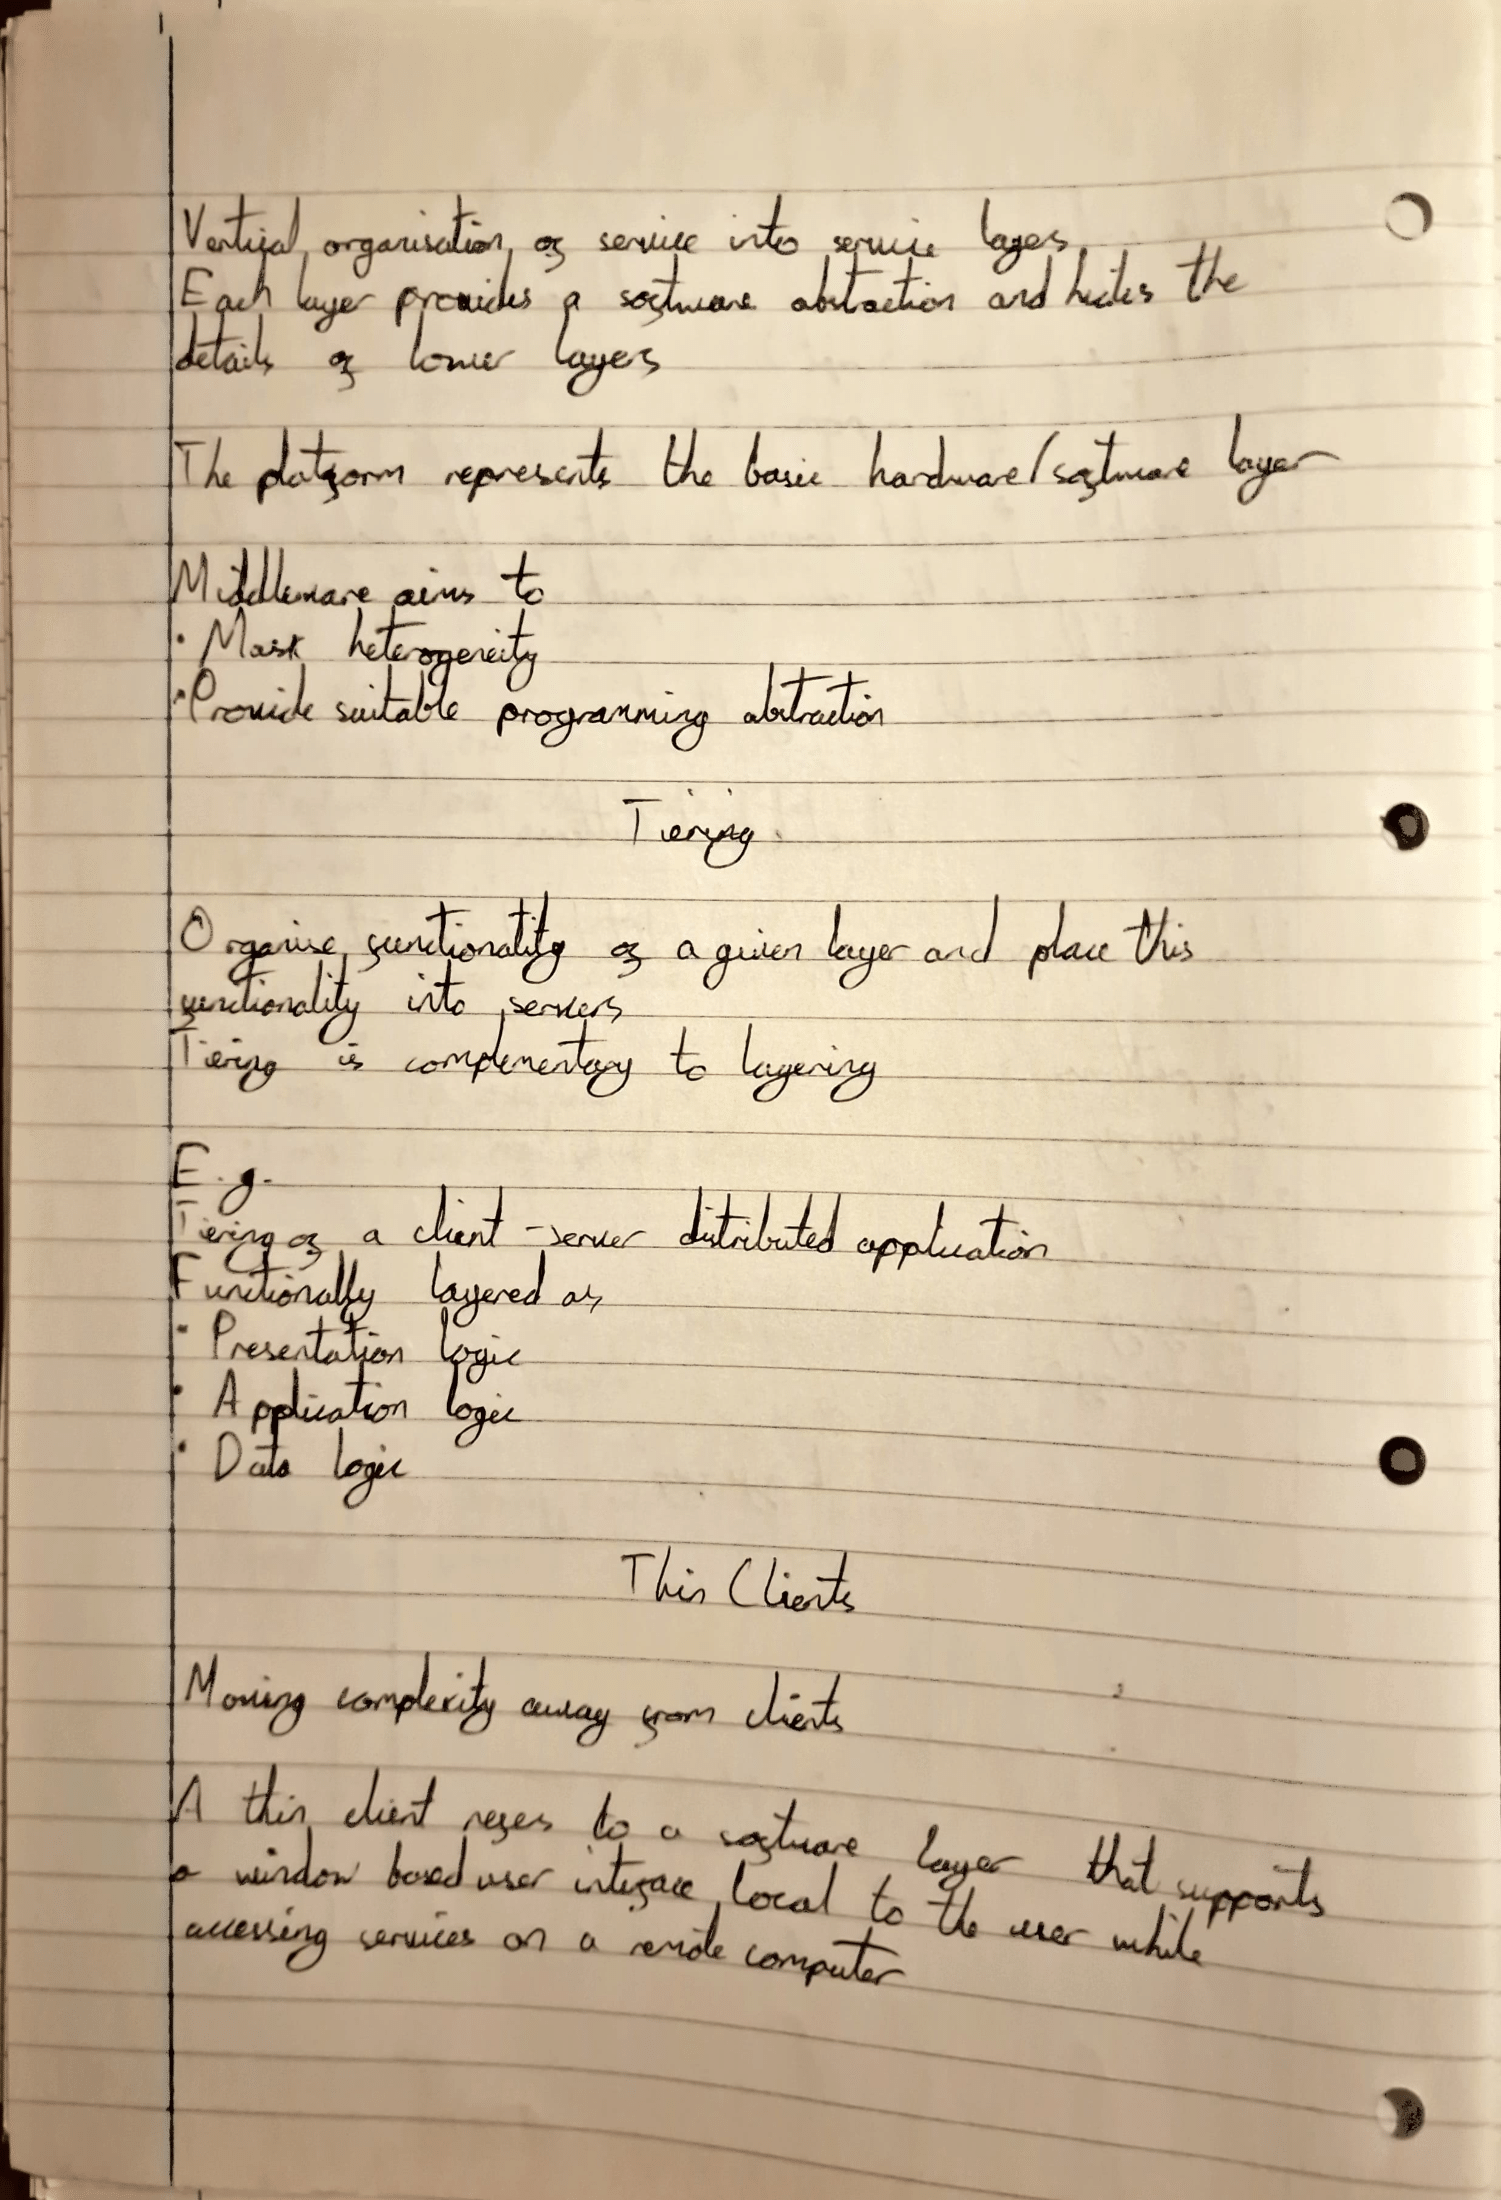 Vertical organisation of service into service layers
Each layer provides a software abstraction and hides the
details of lower layers
The platform represents the basic hardware/software layer
Middleware aims to
· Mask heterogeneity
· Provide suitable programming abstraction
Tiering
Organise functionality of a given layer and place this
functionality into servers
Tiering is complementary to layering
E.g.
Tiering of a client-server distributed application
Functionally layered as
· Presentation logic
· Application logic
· Data logic
Thin Clients
Moving complexity away from clients
A thin client refers to a software layer that supports
a window based user interface local to the user while
accessing services on a remote computer